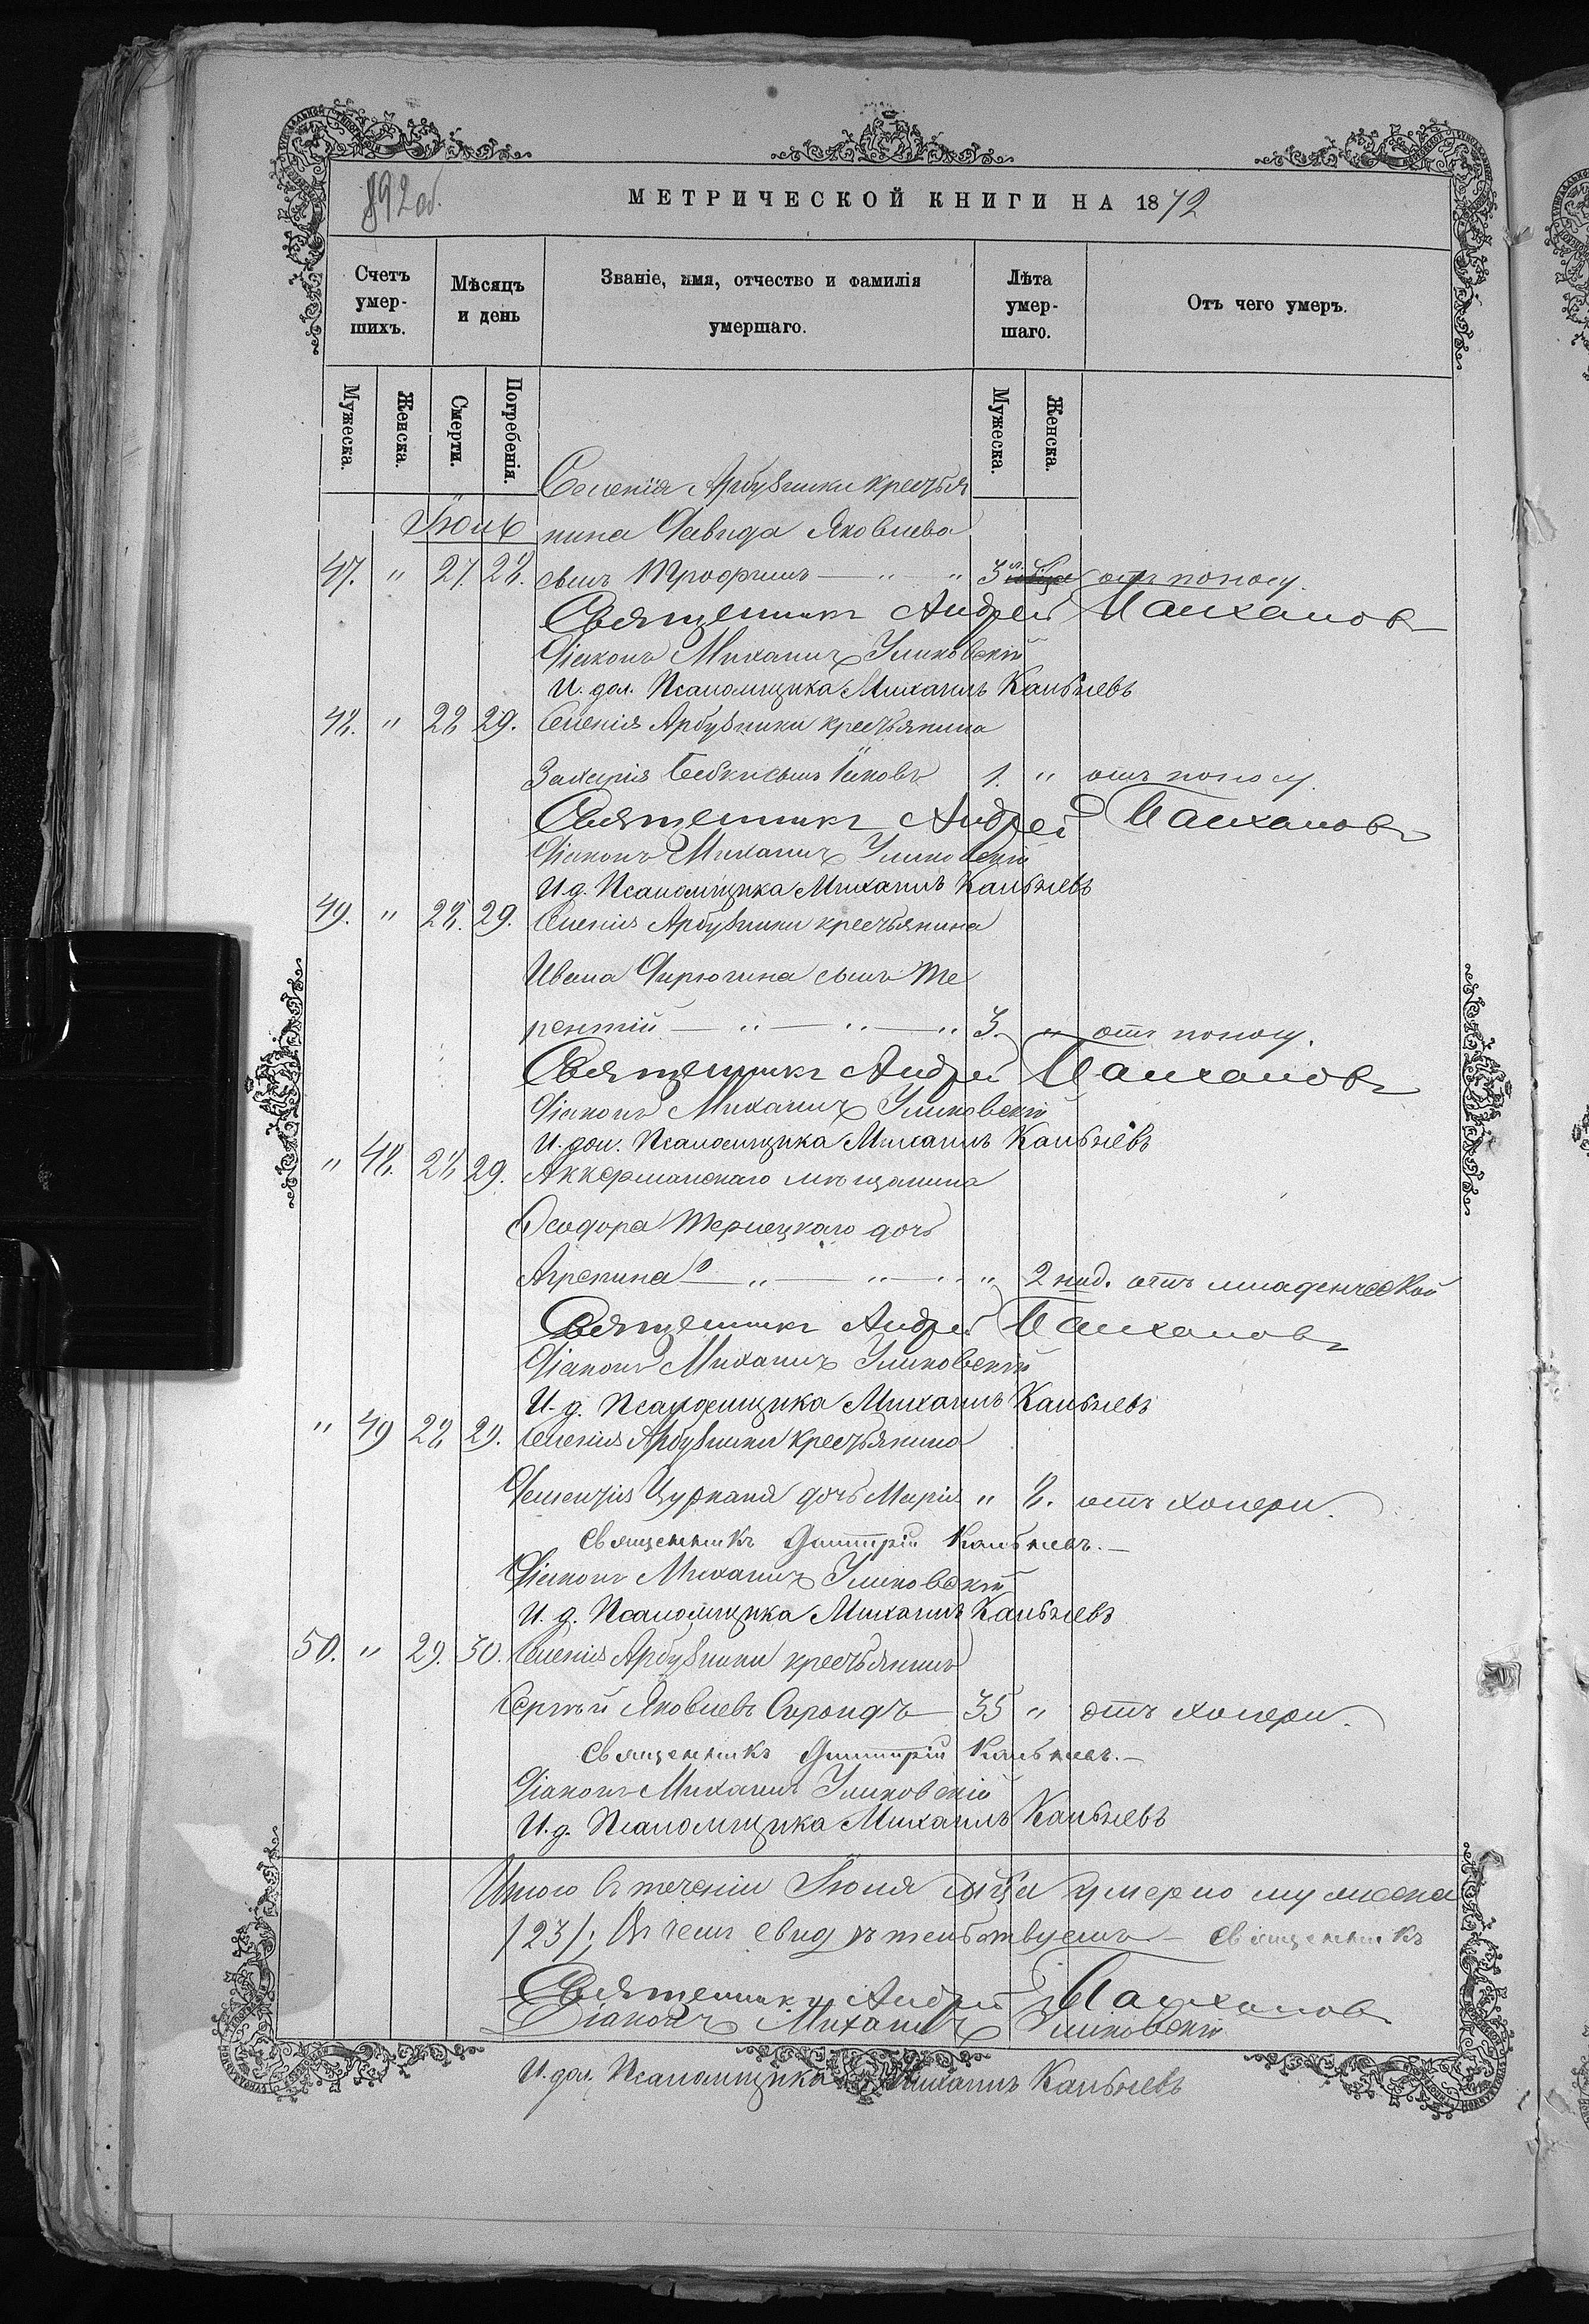 892 об.
МЕТРИЧЕСКОЙ КНИГИ НА 1872
Счетъ умер-шихъ. Мѣсяцъ и день Званіе, имя, отчество и фамилія умершаго. Лѣта умер-шаго. Отъ чего умеръ.
Мужеска. Женска. Смерти. Погребенія. Мужеска. Женска.
Селенія Арбузинки крестья
Іюнь нина Давида Яковлева
47. " 27. 28. сынъ Трофимъ — " — " 3 отъ поносу.
Священникъ Андрей
Діаконъ Михаилъ Уликовскій
И. дол. Псаломщика Михаилъ Кальневъ
48. " 28 29. Селенія Арбузинки крестьянина
Захарія сынъ Іаковъ 1. " отъ поносу.
Священникъ Андрей
Діаконъ Михаилъ Уликовскій
И. д. Псаломщика Михаилъ Кальневъ
49. " 28. 29. Селенія Арбузинки крестьянина
Ивана Чирюгина сынъ Те
рентій — " — " — " 3. " отъ поносу.
Священникъ Андрей
Діаконъ Михаилъ Уликовскій
И. дол. Псаломщика Михаилъ Кальневъ
" 48. 28 29. Аккерманскаго мѣщанина
Ѳеодора Терлецкаго дочь
Агрепина — " — " — " 2 нед. отъ младенческой
Священникъ Андрей
Діаконъ Михаилъ Уликовскій
И. д. Псаломщика Михаилъ Кальневъ
" 49 28 29. Селенія Арбузинки крестьянина
Цуркана дочь Марія " 8. отъ холери.
Священникъ Димитрій Кальневъ.—
Діаконъ Михаилъ Уликовскій
И. д. Псаломщика Михаилъ Кальневъ
50. " 29. 30. Селенія Арбузинки крестьянинъ
Сергѣй Яковлевъ 35 " отъ холери.
Священникъ Димитрій Кальневъ.—
Діаконъ Михаилъ Уликовскій
И. д. Псаломщика Михаилъ Кальневъ
Итого въ теченіи Іюня мѣца умерло мужеска
/23/; Въ чемъ свидѣтельствуемъ — Священникъ
Священникъ Андрей
Діаконъ Михаилъ Уликовскій
И. дол. Псаломщика Михаилъ Кальневъ